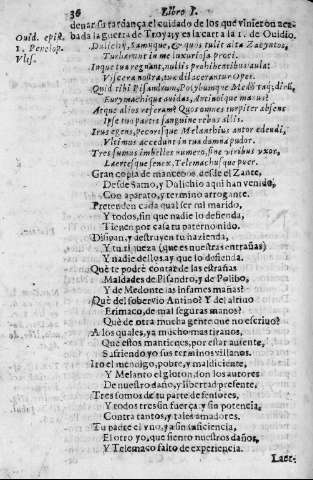 36 Libro I.
denar su tardança el cuidado de los que vinieron aca-
bada la guerra de Troya; y es la carta la 1. de Ouidio.
Ouid. epist.
1. Penelop.
Vlis.
Dulichij, Samijque, & quos tulit alta Zacyntos,
Turba ruit in me luxuriosa proci.
Inque tua regnant, nullis prohibentibus aula:
Viscera nostra, tuæ dilacerantur opes.
Quid tibi Pisandrum, Polybumque Medontaq; dirũ,
Eurymachique auidas, Antinoique manus?
Atque alios referam? Quos omnes turpiter absens
Ipse tuo partis sanguine rebus allis.
Irus egens, pecorisque Melanthius autor edendi,
Vltimus accedunt in tua damna pudor.
Tres sumus imbelles numero, sine viribus vxor,
Laertesque senex, Telemachusque puer.
Gran copia de mancebos, desde el Zante,
Desde Samo, y Dulichio aqui han venido,
Con aparato, y termino arrogante.
Pretenden cada qual ser mi marido,
Y todos, sin que nadie lo defienda,
Tienen por casa tu paterno nido.
Disipan, y destruyen tu hazienda,
Y tu riqueza (que es nuestras entrañas)
Y nadie dellos, ay que lo defienda.
Què te podrè contar de las estrañas
Maldades de Pisandro, y de Polibo,
Y de Medonte las infames mañas?
Què del sobervio Antino? Y del altiuo
Erimaco, de mal seguras manos?
Què de otra mucha gente que no escriuo?
A los quales, ya mucho mas tiranos,
Que estos mantienes, por estar ausente,
Sufriendo yo sus terminos villanos.
Iro el mendigo, pobre, y maldiciente,
Y Melanto el gloton, son los autores
De nuestro daño, y libertad presente.
Tres somos de tu parte defensores,
Y todos tres sin fuerça, y sin potencia,
Contra tantos, y tales amadores.
Tu padre el vno, ya sin suficiencia,
El otro yo, que siento nuestros daños,
Y Telemaco falto de experiencia.
Laer-